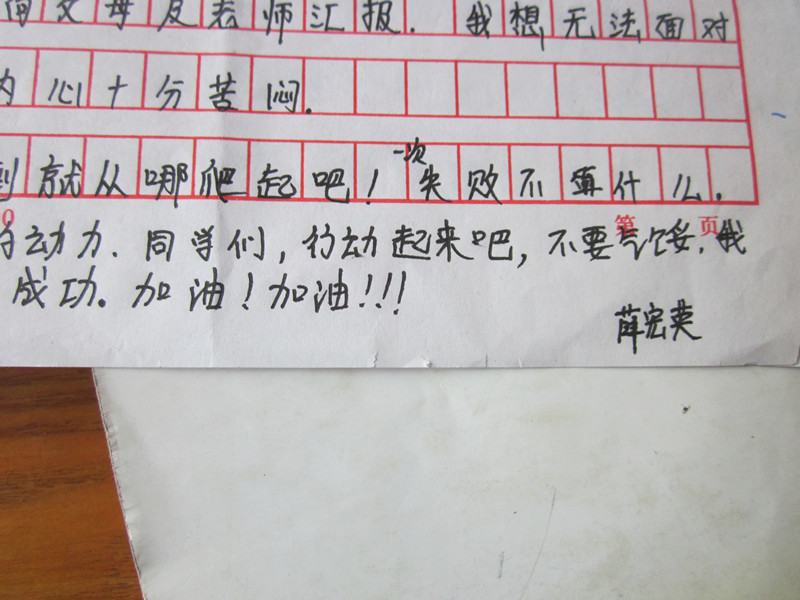 父母及老师汇报. 我想,无法面对
内心十分苦闷.
到就从哪爬起吧!一次失败不算什么.
第 页
动力.同学们,行动起来吧,不要气馁,我
成功。加油!加油!!!
薛宏英